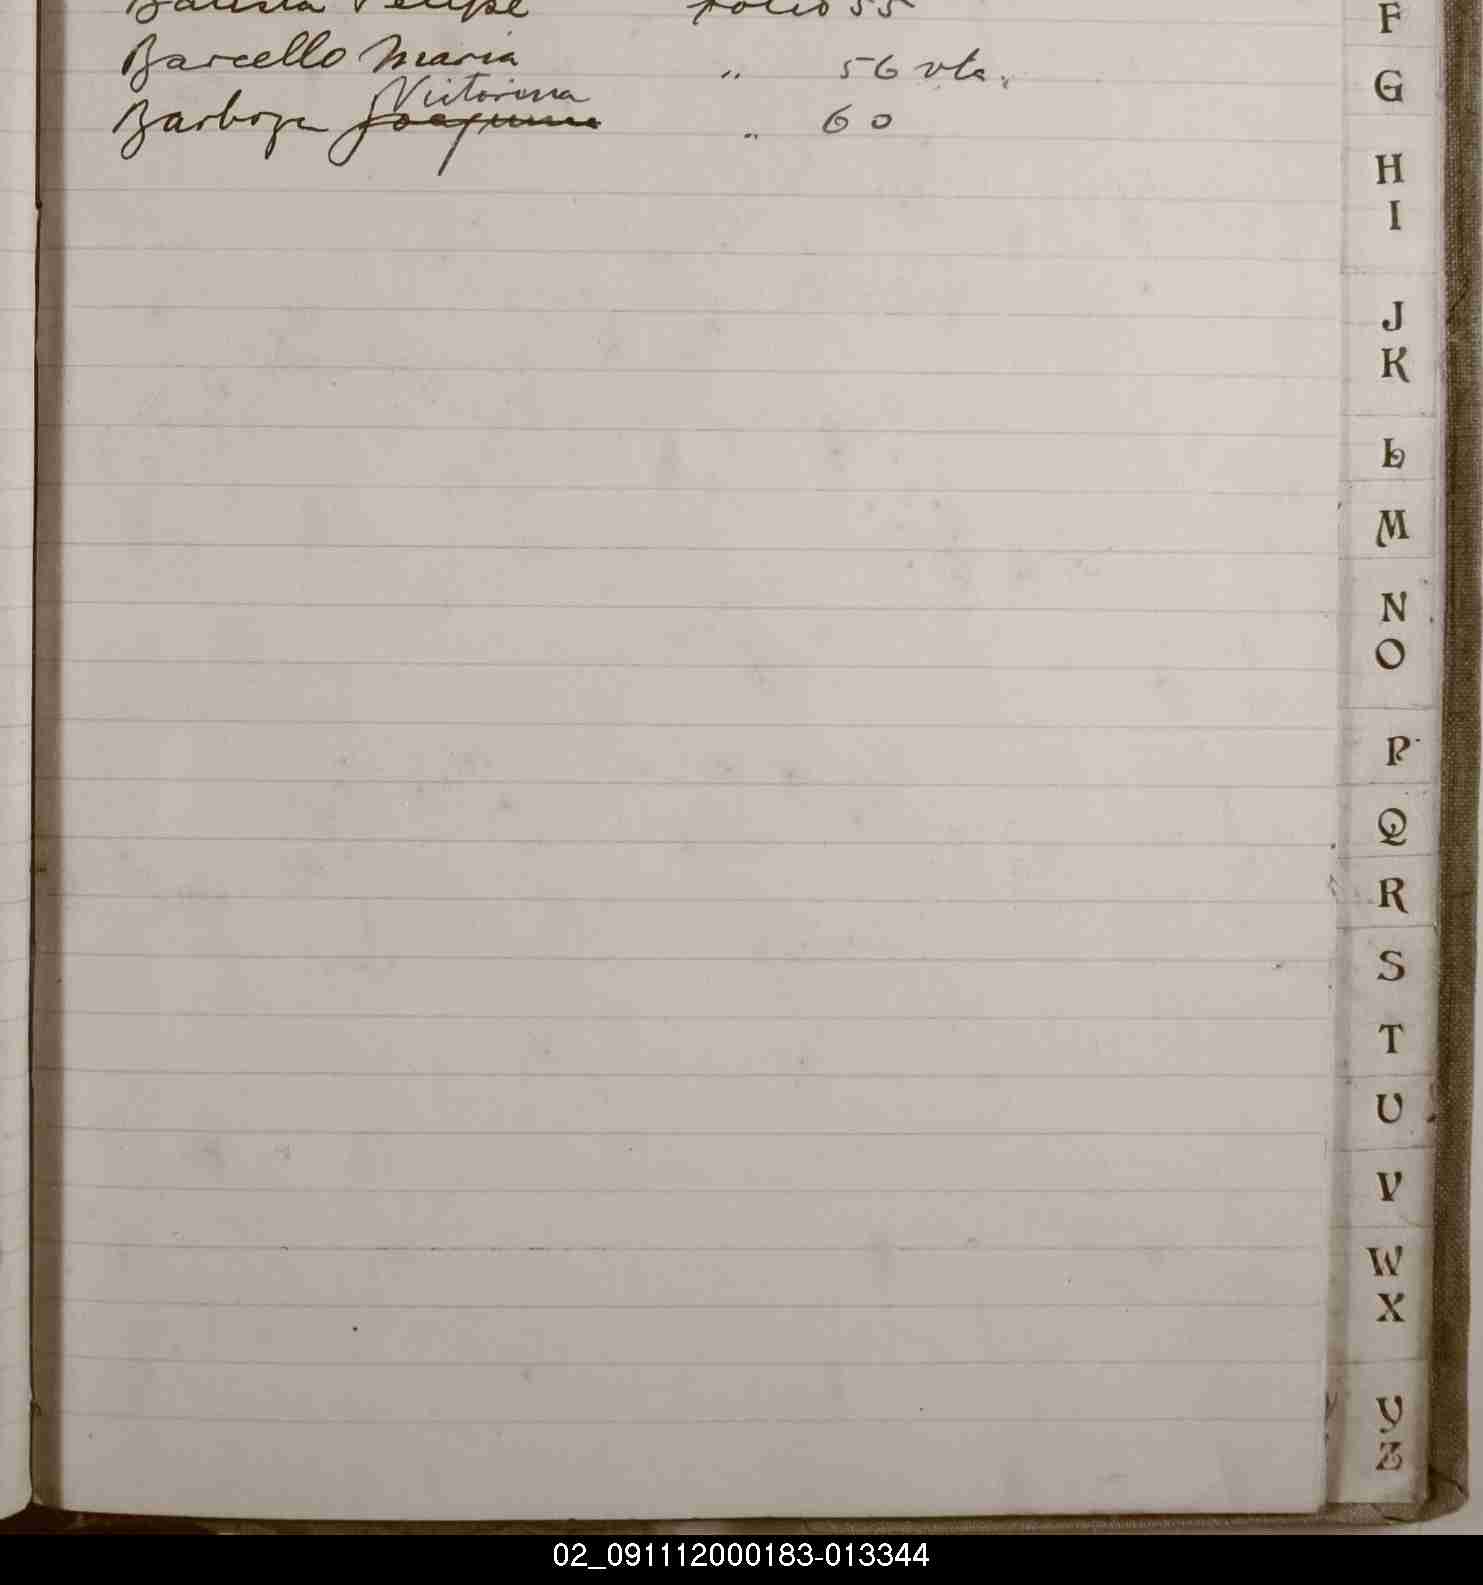 Batista Felipe folio 55
Barcello Maria " 56 vta.
Victorina
Barboza Joaquina " 60
F
G
H
I
J
K
L
M
N
O
P
Q
R
S
T
U
V
W
X
Y
Z
02_091112000183-013344